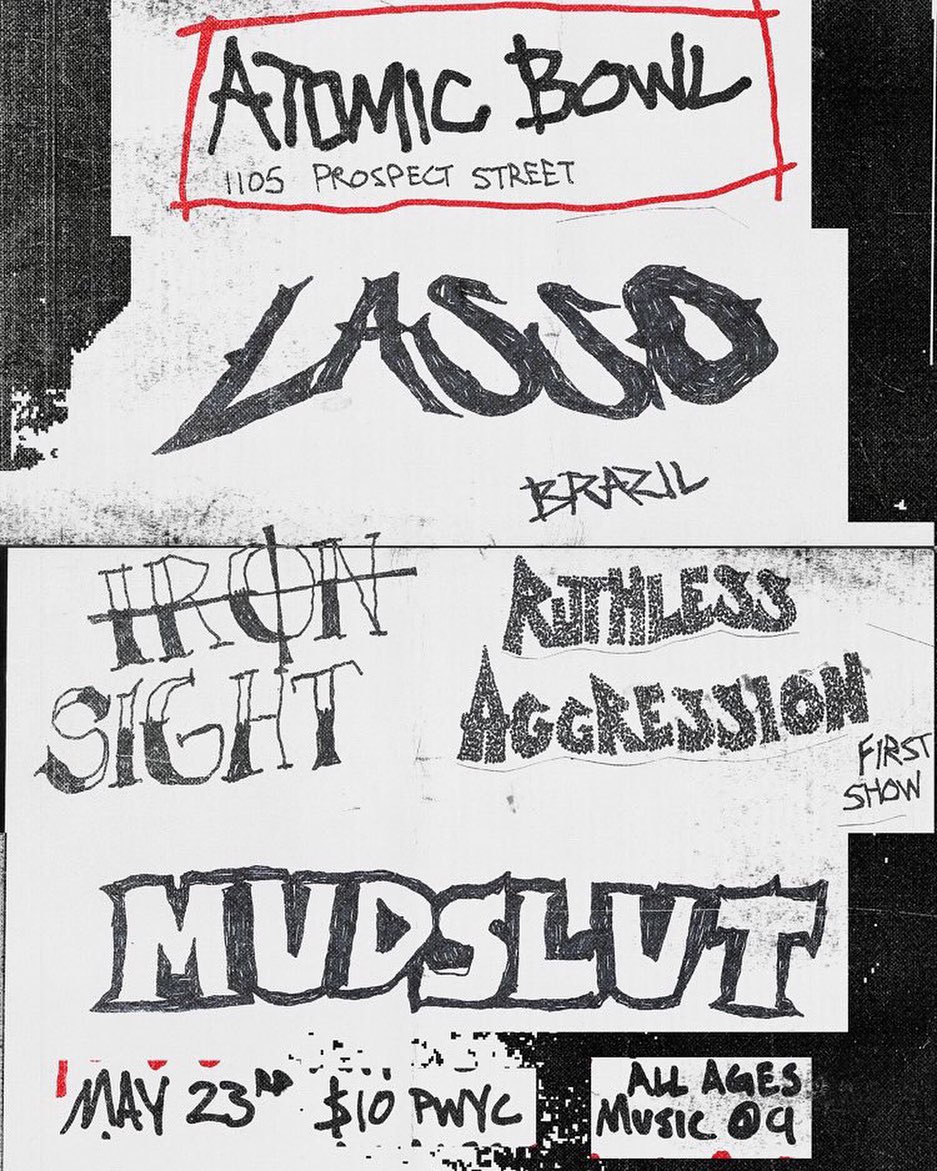 ATOMIC BOWL
1105 PROSPECT STREET
LASSO
BRAZIL
IRON
SIGHT
RUTHLESS
AGGRESSION
FIRST
SHOW
MUDSLUT
MAY 23RD $10 PWYC
ALL AGES
MUSIC @9